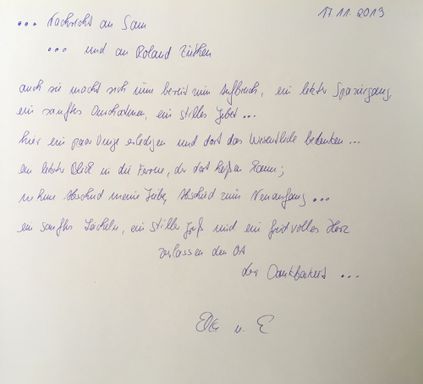 17.11.2013
... Nachricht an Sam
... und an Roland
auch sie macht sich nun bereit zum Aufbruch, ein letzter Spaziergang,
ein sanftes Durchatmen, ein stilles Gebet ...
hier ein paar Dinge erledigen und dort das Wesentliche bedenken ...
ein letzter Blick in die Ferne, der dort
nehme Abschied meine Liebe, Abschied zum Neuanfang ...
ein sanftes Lächeln, ein stiller und ein Herz
den
der Dankbarkeit ...